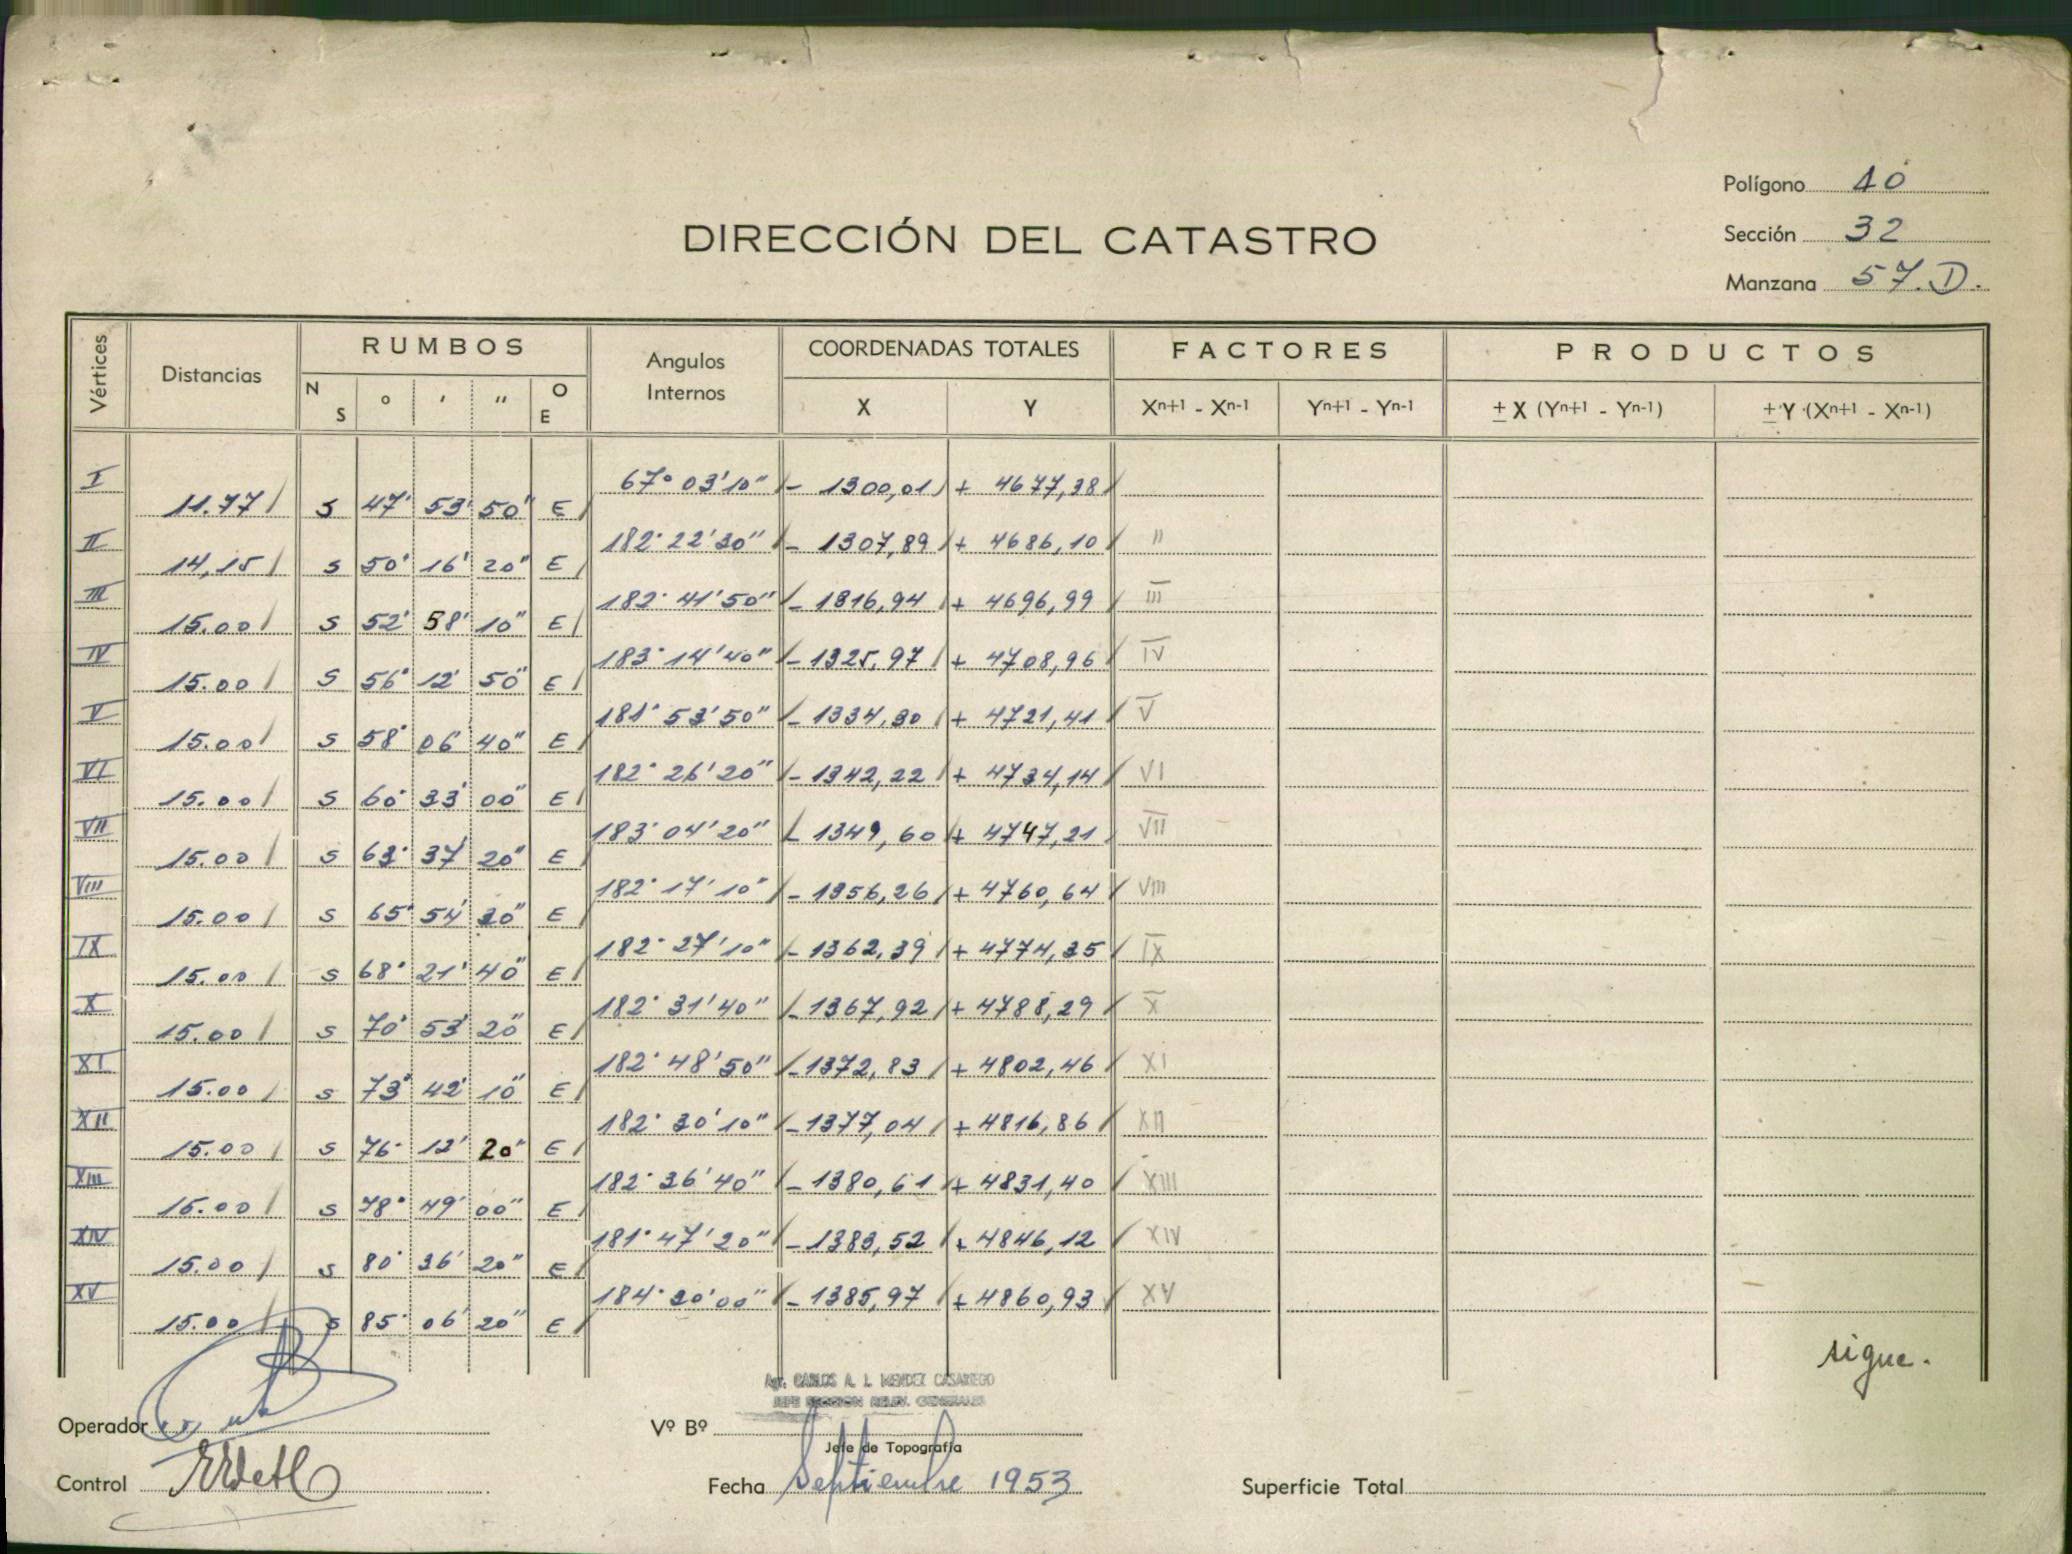 Polígono 40
Sección 32
Manzana 57.D.
DIRECCIÓN DEL CATASTRO
Vértices Distancias RUMBOS Angulos Internos COORDENADAS TOTALES FACTORES PRODUCTOS
N S ° ' " O E X Y Xn+1 - Xn-1 Yn+1 - Yn-1 ± X (Yn+1 - Yn-1) ± Y (Xn+1 - Xn-1)
I 67° 03' 10" - 1300,01 + 4677,38
11.77 S 47° 53' 50" E
II 182° 22' 30" - 1307,89 + 4686,10 II
14,15 S 50° 16' 20" E
III 182° 41' 50" - 1316,94 + 4696,99 III
15.00 S 52° 58' 10" E
IV 183° 14' 40" - 1325,97 + 4708,96 IV
15.00 S 56° 12' 50" E
V 181° 53' 50" - 1334,30 + 4721,41 V
15.00 S 58° 06' 40" E
VI 182° 26' 20" - 1342,22 + 4734,14 VI
15.00 S 60° 33' 00" E
VII 183° 04' 20" - 1349,60 + 4747,21 VII
15.00 S 63° 37' 20" E
VIII 182° 17' 10" - 1356,26 + 4760,64 VIII
15.00 S 65° 54' 30" E
IX 182° 27' 10" - 1362,39 + 4774,35 IX
15.00 S 68° 21' 40" E
X 182° 31' 40" - 1367,92 + 4788,29 X
15.00 S 70° 53' 20" E
XI 182° 48' 50" - 1372,83 + 4802,46 XI
15.00 S 73° 42' 10" E
XII 182° 30' 10" - 1377,04 + 4816,86 XII
15.00 S 76° 12' 20" E
XIII 182° 36' 40" - 1380,61 + 4831,40 XIII
15.00 S 78° 49' 00" E
XIV 181° 47' 20" - 1383,52 + 4846,12 XIV
15.00 S 80° 36' 20" E
XV 184° 30' 00" - 1385,97 + 4860,93 XV
15.00 S 85° 06' 20" E
sigue.
Agr. CARLOS A. L. MENDEZ CASARIEGO
JEFE SECCION RELEV. GENERALES
Operador Vº Bº
Jefe de Topografía
Control Fecha Septiembre 1953 Superficie Total